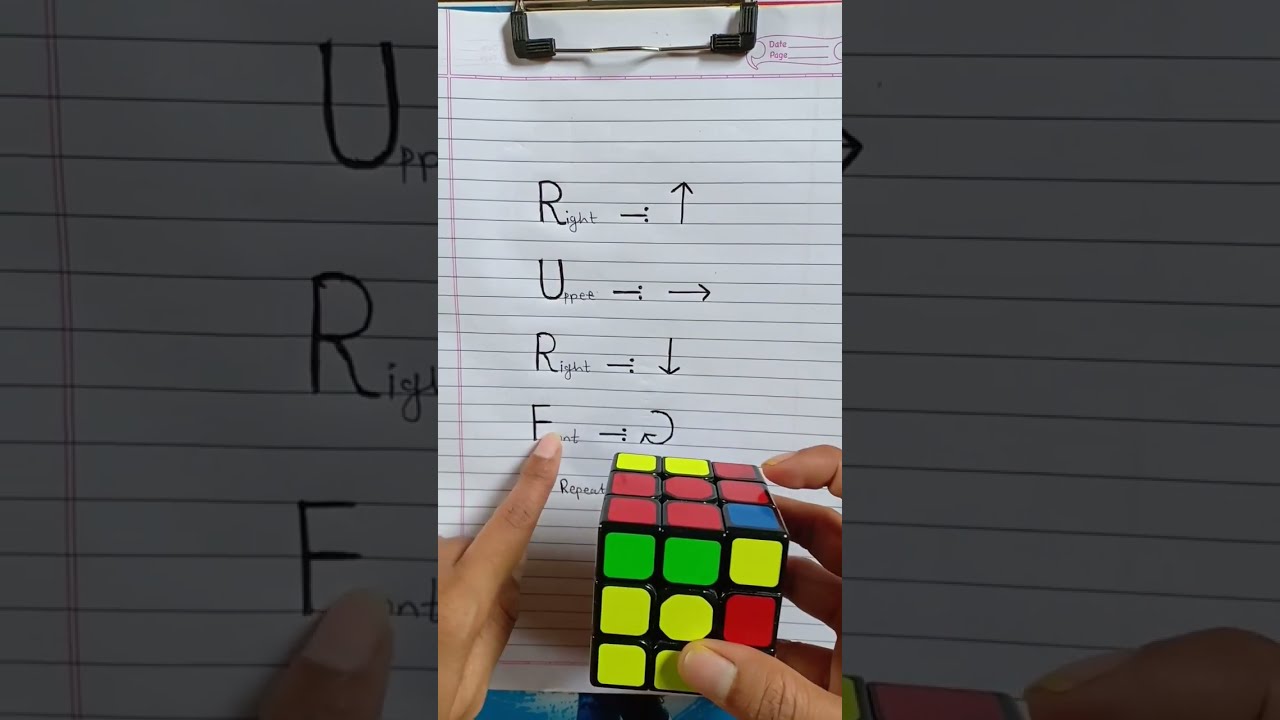 Date
Page
Right -: ↑
Upper -: →
Right -: ↓
F nt -:
Repeat